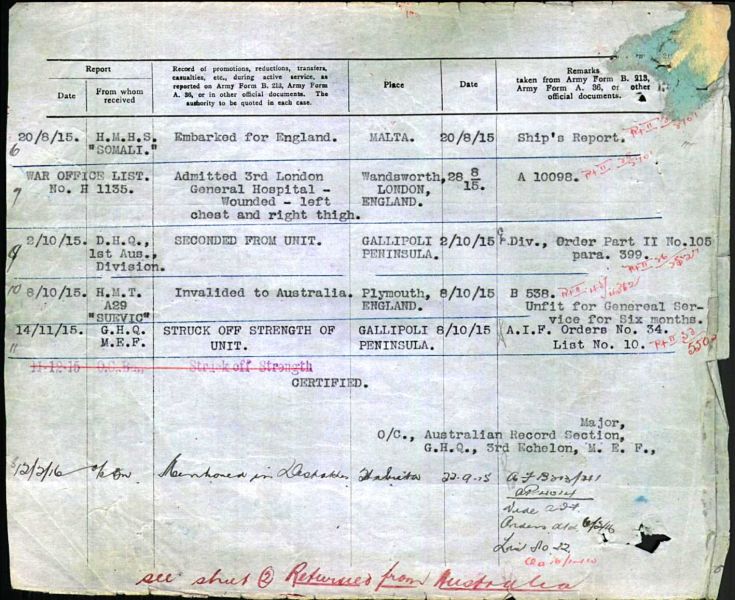 Report
Date
From whom received
Record of promotions, reductions, transfers,
casualties, etc., during active service, as
reported on Army Form B. 213, Army Form
A. 36, or in other official documents. The
authority to be quoted in each case.
Place
Date
Remarks
taken from Army Form B. 213,
Army Form A. 36, or other
official documents.
20/8/15. H.M.H.S. Embarked for England. MALTA. 20/8/15 Ship's Report.
"SOMALI."
WAR OFFICE LIST. Admitted 3rd London Wandsworth, 28 8/15. A 10098.
No. H 1135. General Hospital - LONDON,
Wounded - left ENGLAND.
chest and right thigh.
2/10/15. D.H.Q., SECONDED FROM UNIT. GALLIPOLI 2/10/15 Div., Order Part II No.105
1st Aus., PENINSULA. para. 399.
Division.
8/10/15. H.M.T. Invalided to Australia. Plymouth, 8/10/15 B 538.
A29 ENGLAND. Unfit for Genereal Ser-
"SUEVIC" vice for Six months.
14/11/15. G.H.Q. STRUCK OFF STRENGTH OF GALLIPOLI 8/10/15 A.I.F. Orders No. 34.
M.E.F. UNIT. PENINSULA. List No. 10.
11-12-15 Struck off Strength
CERTIFIED.
Major,
O/C., Australian Record Section,
G.H.Q., 3rd Echelon, M. E. F.,
12/2/16 Mentioned in Despatches 22-9-15
Vide
Orders dtd 6/2/16
List No 22
see sheet 2 Returned from Australia